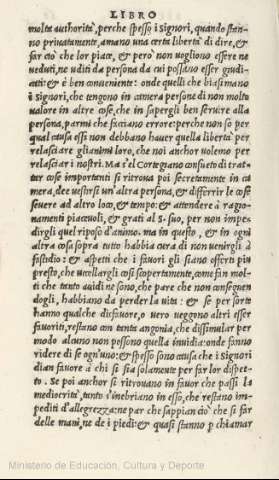 LIBRO
molta authorità, perche spesso i Signori, quando stan-
no priuatamente, amano una certa libertà di dire, et
far ciò che lor piace, et però non uogliono essere ne
ueduti, ne uditi da persona da cui possano esser giudi-
cati: et è ben conueniente: onde quelli che biasimano
i Signori, che tengono in camera persone di non molto
ualore in altre cose, che in saper ben seruire alla
persona, parmi che facciano errore: perche non so per
qual causa essi non debbano hauer quella libertà per
relasciare gli animi loro, che noi anchor uolemo per
relasciar i nostri. Ma s'el Cortegiano consueto di trat-
tar cose importanti si ritroua poi secretamente in ca
mera, dee uestirsi un'altra persona, et differrir le cose
seuere ad altro loco, et tempo: et attendere à ragio-
namenti piaceuoli, et grati al S. suo, per non impe-
dirgli quel riposo d'animo. ma in questo, et in ogni
altra cosa sopra tutto habbia cura di non uenirgli à
fastidio: et aspetti che i fauori gli siano offerti piu
presto, che uccellargli cosi scopertamente, come fan mol-
ti che tanto auidi ne sono, che pare che non conseguen
dogli, habbiano da perder la uita: et se per sorte
hanno qualche disfauore, o uero ueggono altri esser
fauoriti, restano con tanta angonia, che dissimular per
modo alcuno non possono quella inuidia: onde fanno
ridere di se ogn'uno: et spesso sono causa che i Signori
dian fauore à chi si sia solamente per far lor dispet-
to. Se poi anchor si ritrouano in fauor che passi la
mediocrità, tanto s'inebriano in esso, che restano im-
pediti d'allegrezza: ne par che sappian ciò che si far
delle mani, ne de i piedi: et quasi stanno per chiamar
Ministerio de Educación, Cultura y Deporte